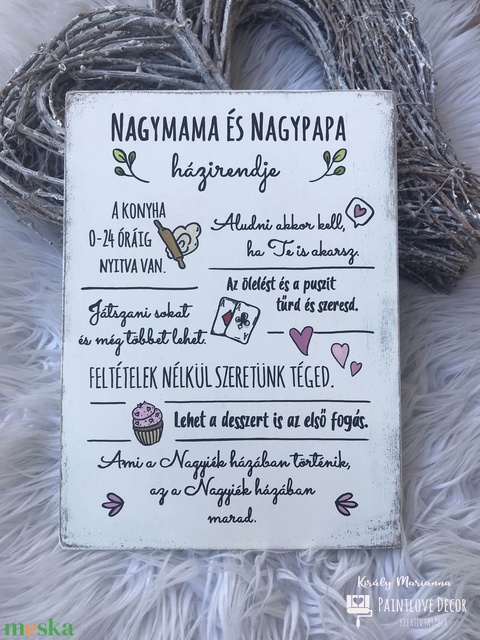 NAGYMAMA ÉS NAGYPAPA
házirendje
A KONYHA
0-24 ÓRÁIG
NYITVA VAN.
Aludni akkor kell,
ha Te is akarsz.
Az ölelést és a puszit
tűrd és szeresd.
Játszani sokat
és még többet lehet.
FELTÉTELEK NÉLKÜL SZERETÜNK TÉGED.
Lehet a desszert is az első fogás.
Ami a Nagyiék házában történik,
az a Nagyiék házában
marad.
Király Marianna
PAINTLOVE DECOR
meska